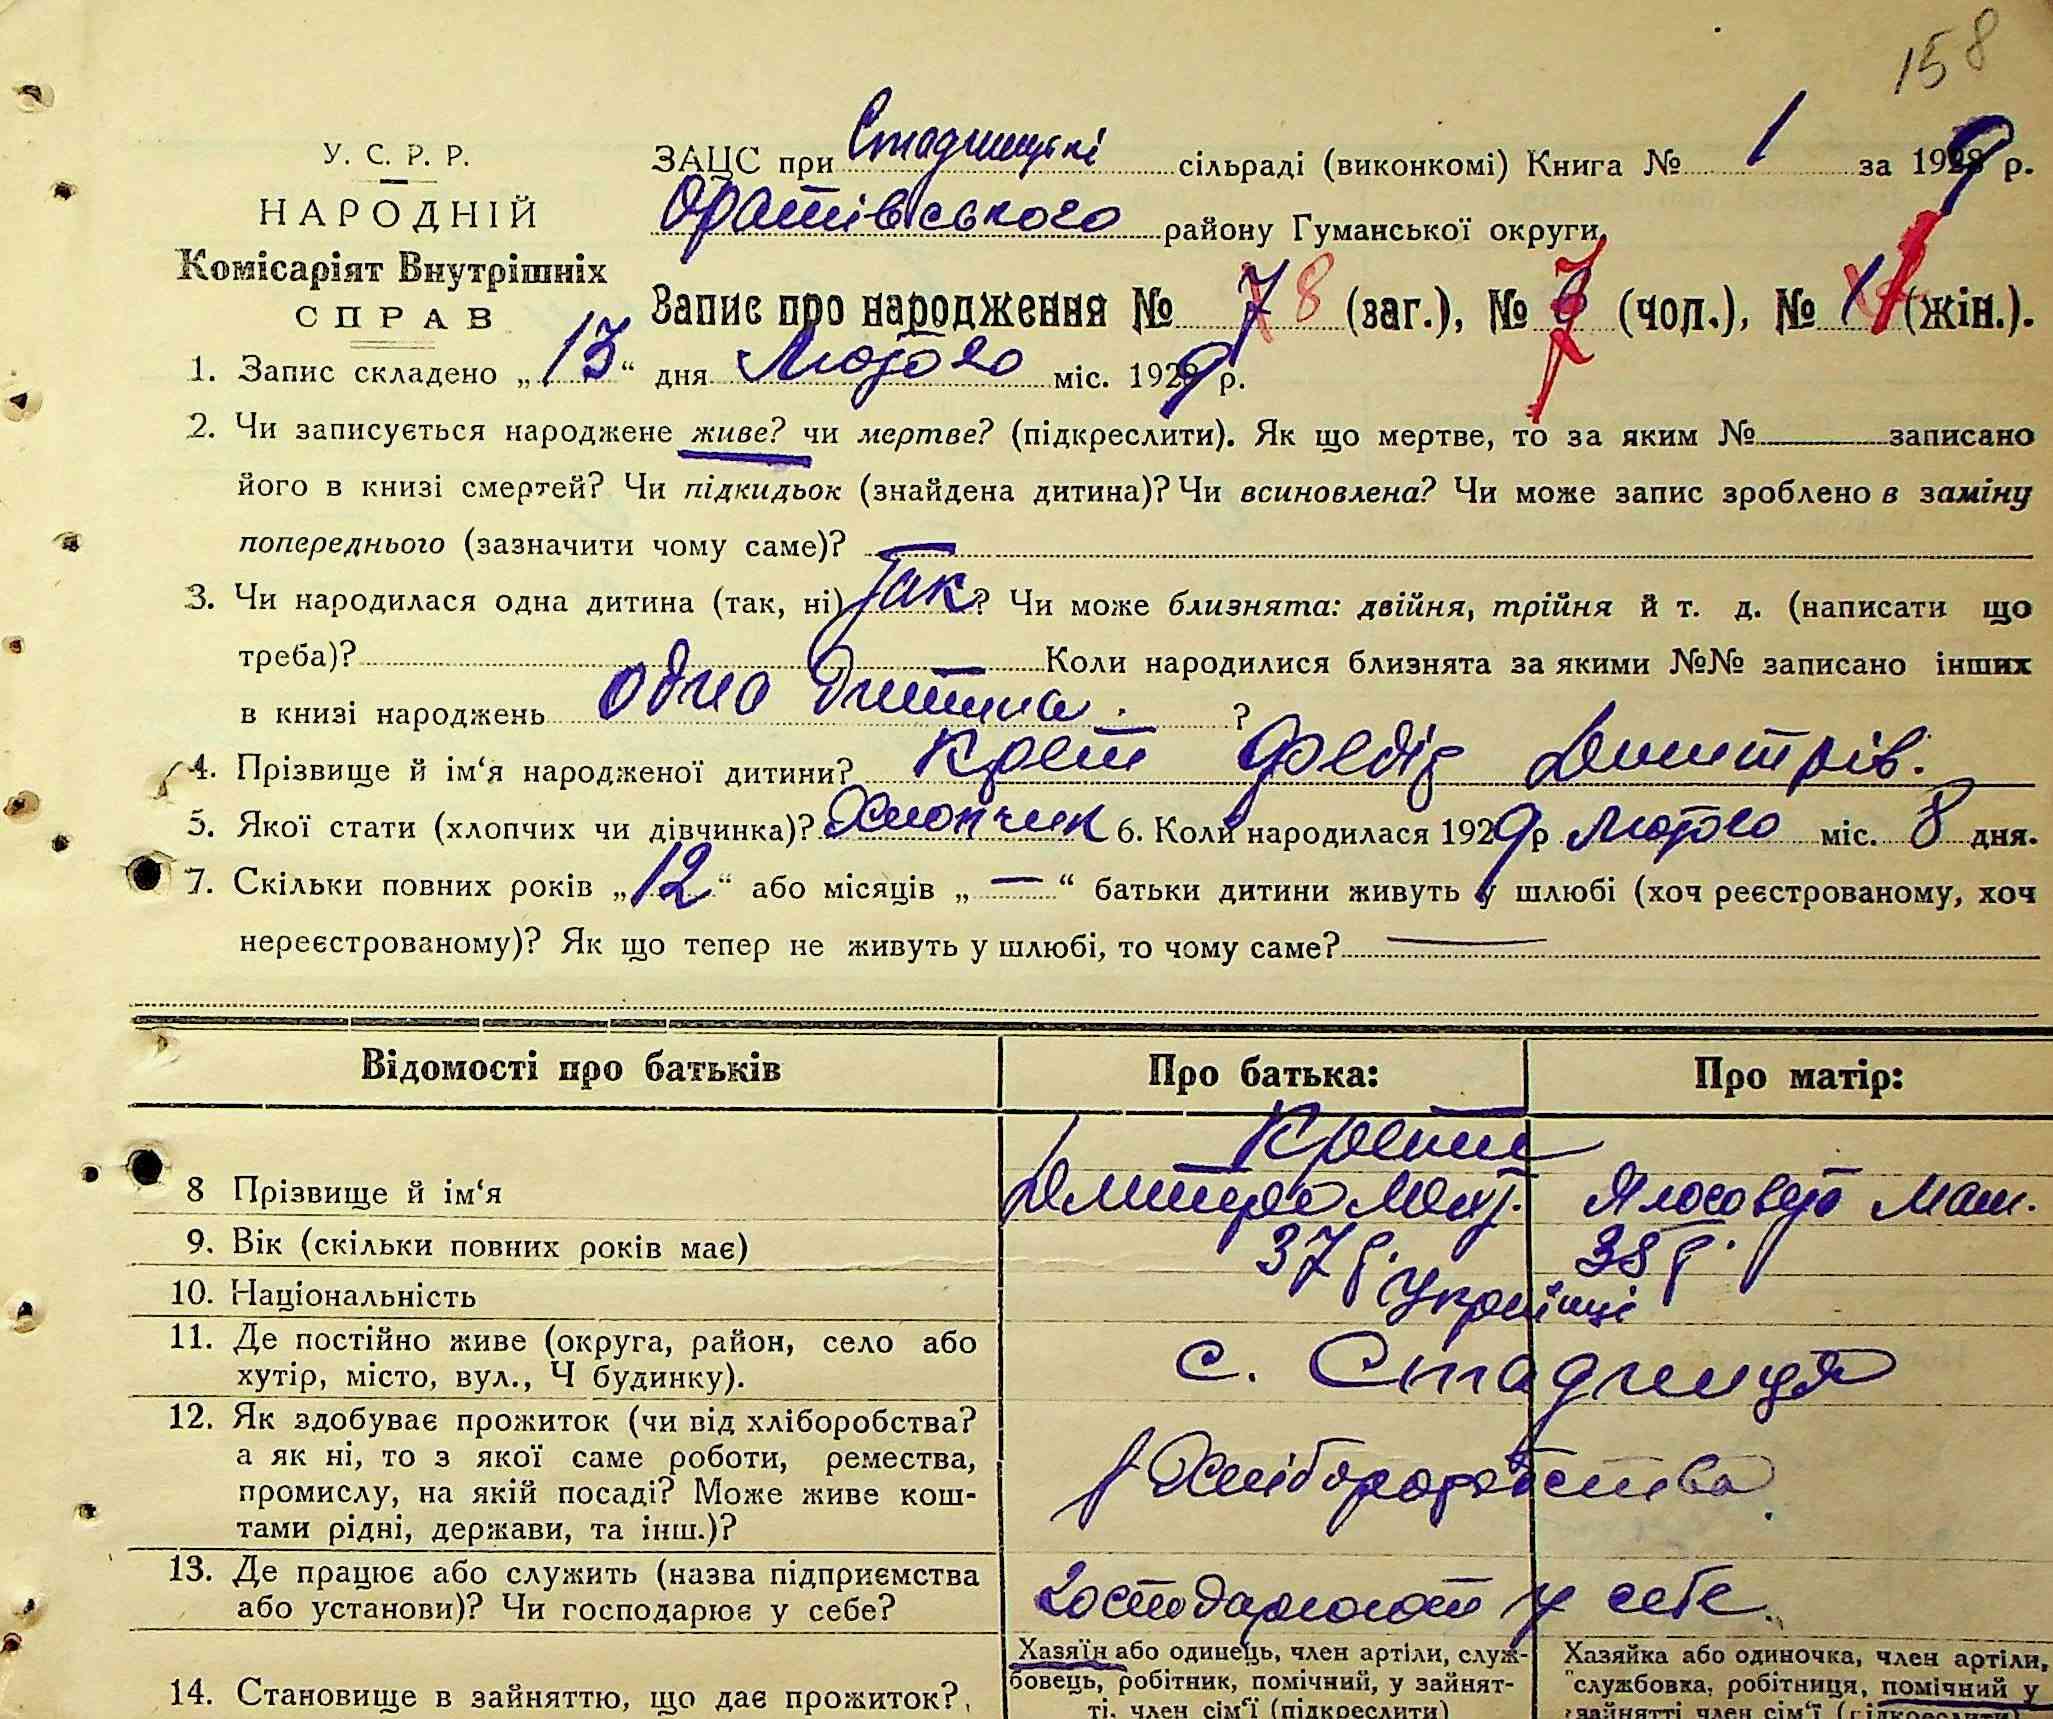 158
У. С. Р. Р.
НАРОДНІЙ
Комісаріят Внутрішніх
СПРАВ
ЗАЦС при Стадницькі сільраді (виконкомі) Книга № 1 за 1929 р.
Оратівського району Гуманської округи.
Запис про народження № 8 (заг.), № 7 (чол.), № 1 (жін.).
1. Запис складено „13“ дня Лютого міс. 1929 р.
2. Чи записується народжене живе? чи мертве? (підкреслити). Як що мертве, то за яким № записано
його в книзі смертей? Чи підкидьок (знайдена дитина)? Чи всиновлена? Чи може запис зроблено в заміну
попереднього (зазначити чому саме)?
3. Чи народилася одна дитина (так, ні) Так? Чи може близнята: двійня, трійня й т. д. (написати що
треба)? — Коли народилися близнята за якими №№ записано інших
в книзі народжень одна дитина. ?
4. Прізвище й ім‘я народженої дитини? Крет Федір Дмитрів.
5. Якої стати (хлопчих чи дівчинка)? Хлопчик 6. Коли народилася 1929 р Лютого міс. 8 дня.
7. Скільки повних років „12“ або місяців „—“ батьки дитини живуть у шлюбі (хоч реєстрованому, хоч
нереєстрованому)? Як що тепер не живуть у шлюбі, то чому саме? —
Відомості про батьків Про батька: Про матір:
Крети
8 Прізвище й ім‘я Дмитро Ялосовета Мат.
9. Вік (скільки повних років має) 37 р. 38 р.
10. Національність Українці
11. Де постійно живе (округа, район, село або
хутір, місто, вул., Ч будинку). с. Стадниця
12. Як здобуває прожиток (чи від хліборобства?
а як ні, то з якої саме роботи, ремества,
промислу, на якій посаді? Може живе кош-
тами рідні, держави, та інш.)? Хліборобства.
13. Де працює або служить (назва підприємства
або установи)? Чи господарює у себе? Господарюют у себе.
14. Становище в зайняттю, що дає прожиток?
Хазяїн або одинець, член артіли, служ-
бовець, робітник, помічний, у зайнят-
ті, член сім‘ї (підкреслити)
Хазяйка або одиночка, член артіли,
службовка, робітниця, помічний у
зайнятті член сім‘ї (підкреслити)